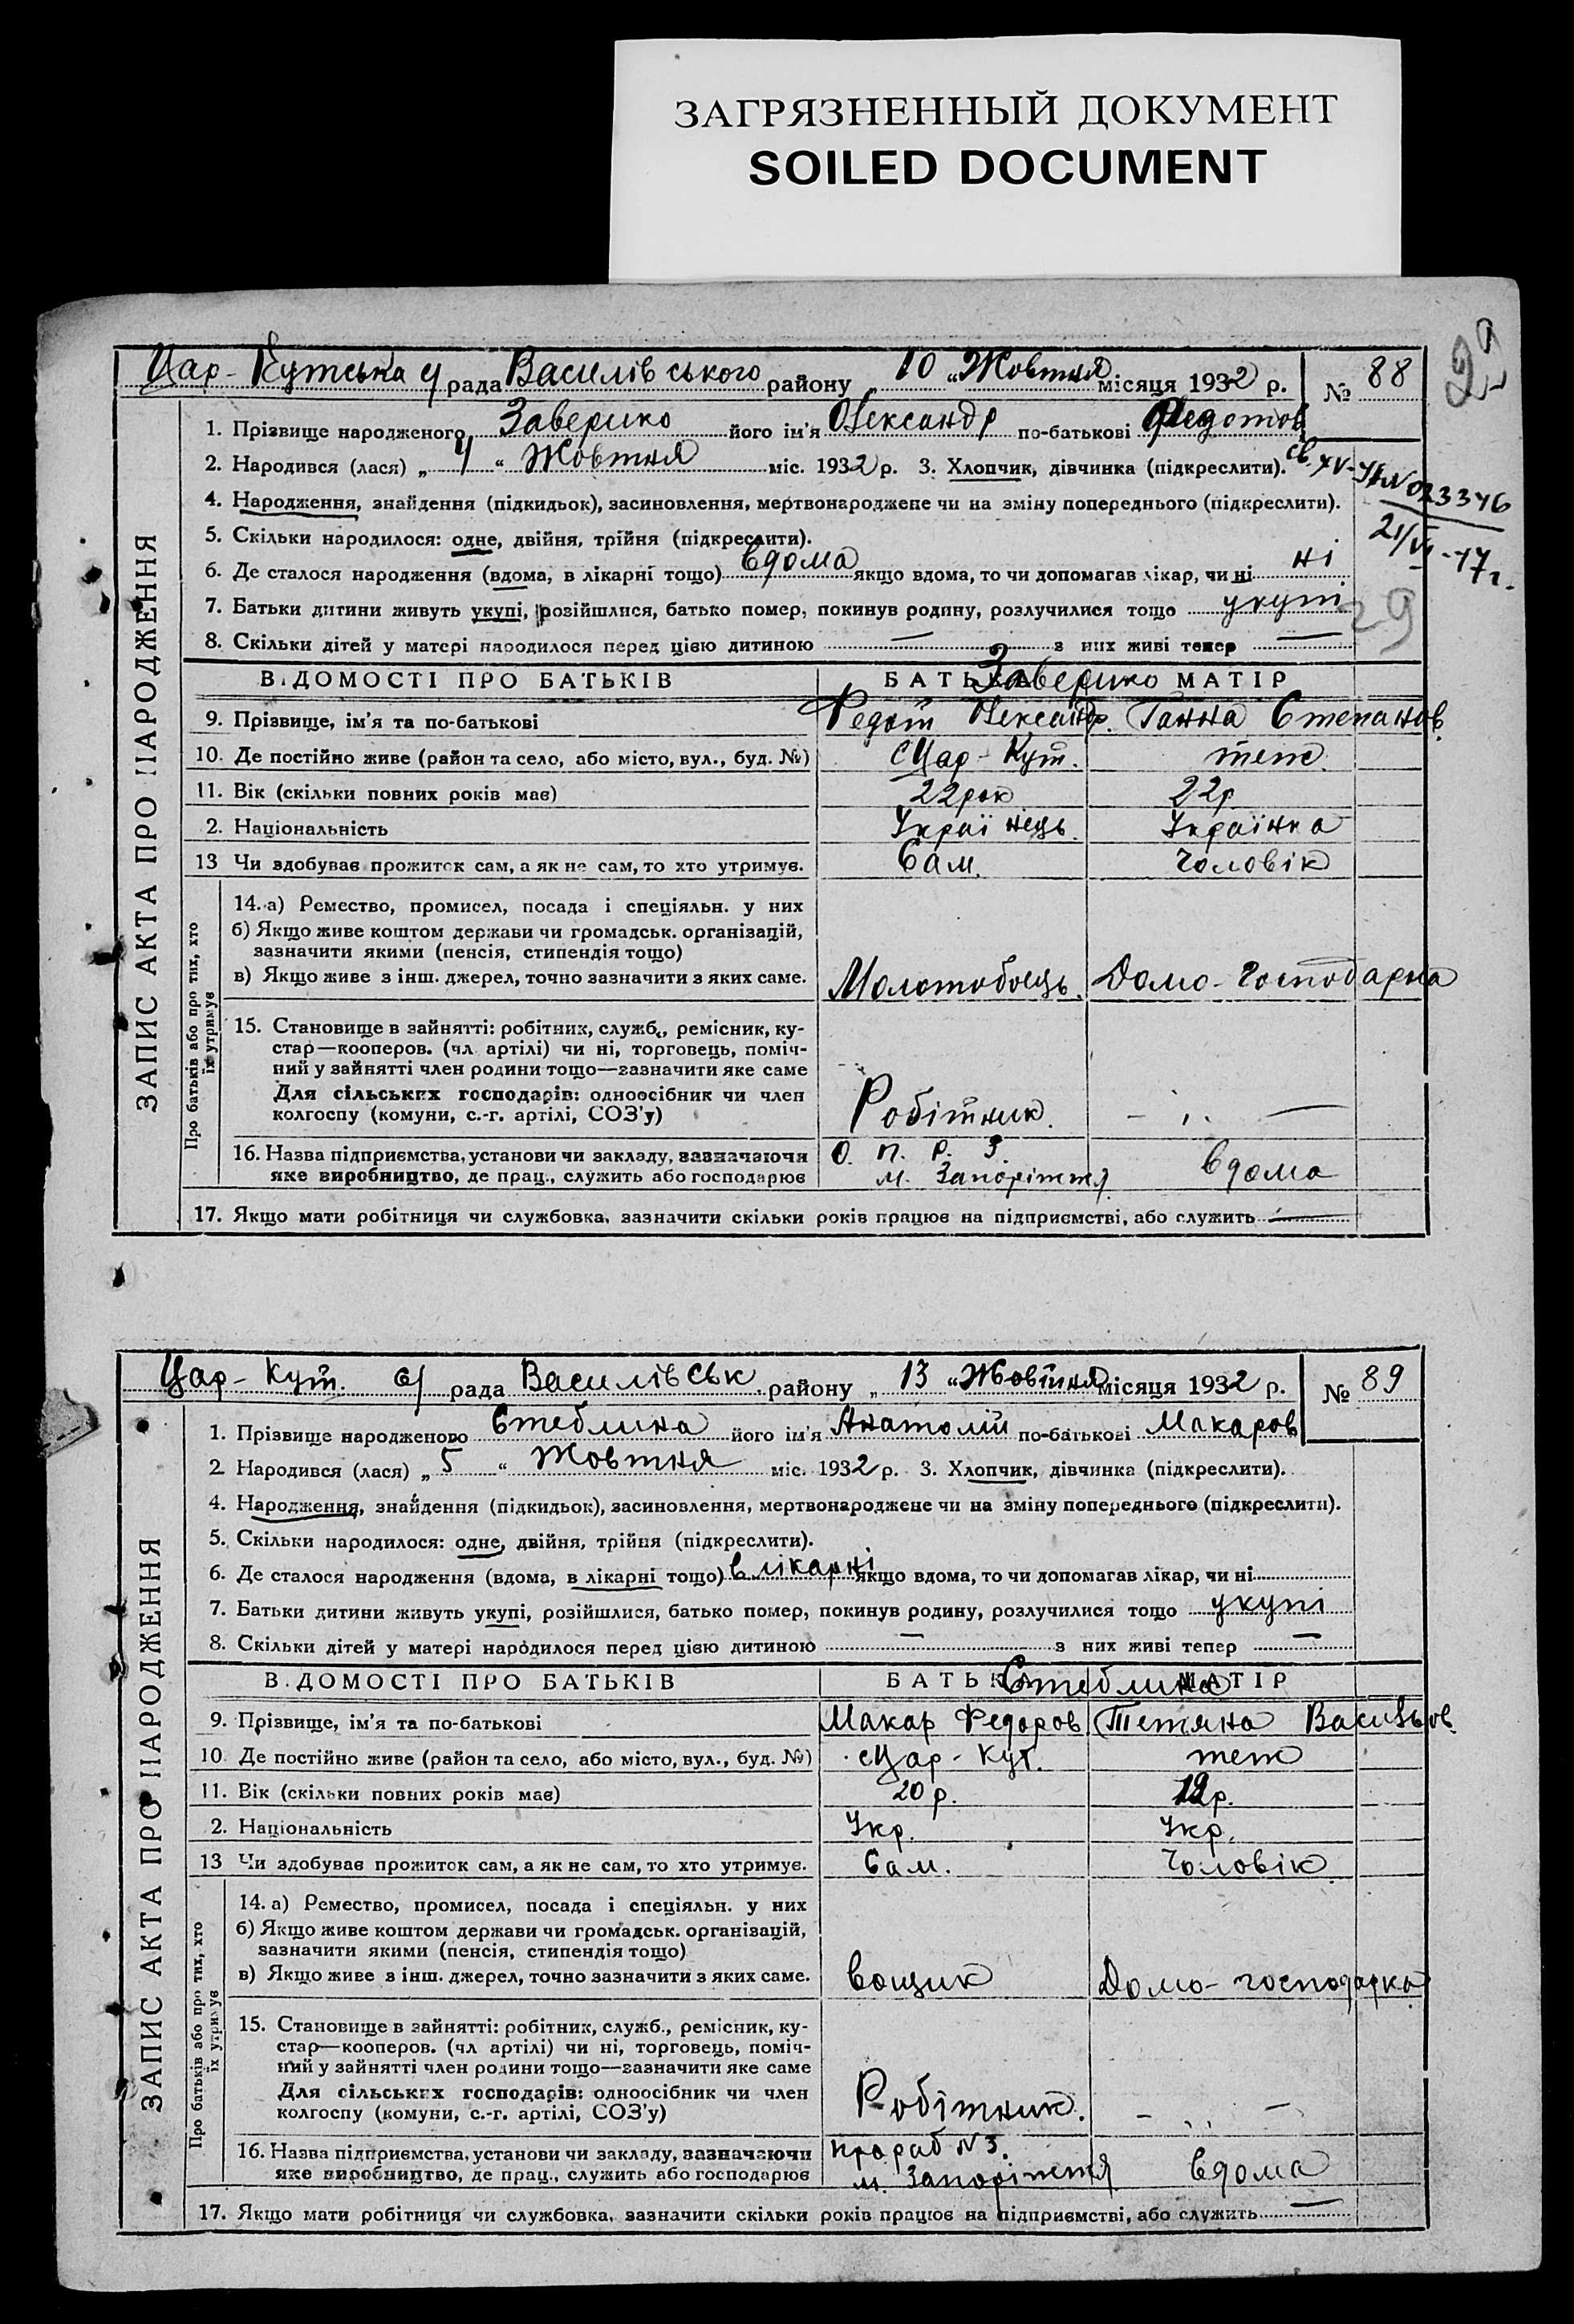 ЗАГРЯЗНЕННЫЙ ДОКУМЕНТ
SOILED DOCUMENT
29
Цар-Кутська с/рада Василівського району „10“ Жовтня місяця 1932 р. № 88
1. Прізвище народженого Заверико його ім'я Олександр по-батькові Федотов
2. Народився (лася) „4“ Жовтня міс. 1932 р. 3. Хлопчик, дівчинка (підкреслити).
св. XV-УЯ N 023346
21/VI-47г.
4. Народження, знайдення (підкидьок), засиновлення, мертвонароджене чи на зміну попереднього (підкреслити).
5. Скільки народилося: одне, двійня, трійня (підкреслити).
6. Де сталося народження (вдома, в лікарні тощо) вдома якщо вдома, то чи допомагав лікар, чи ні ні
7. Батьки дитини живуть укупі, розійшлися, батько помер, покинув родину, розлучилися тощо укупі
29
8. Скільки дітей у матері народилося перед цією дитиною — з них живі тепер —
ВІДОМОСТІ ПРО БАТЬКІВ БАТЬКО МАТІР
Заверико
9. Прізвище, ім'я та по-батькові Федот Олександр. Ганна Степанов.
10. Де постійно живе (район та село, або місто, вул., буд. №) с Цар-Кут. теж.
11. Вік (скільки повних років має) 22 рок 22 р
2. Національність Українець. Українка
13 Чи здобуває прожиток сам, а як не сам, то хто утримує. Сам. Чоловік
14. а) Ремество, промисел, посада і спеціяльн. у них
б) Якщо живе коштом держави чи громадськ. організацій,
зазначити якими (пенсія, стипендія тощо)
в) Якщо живе з інш. джерел, точно зазначити з яких саме. Молотобоєць. Домо-господарка
15. Становище в зайнятті: робітник, служб., ремісник, ку-
стар—кооперов. (чл артілі) чи ні, торговець, поміч-
ний у зайнятті член родини тощо—зазначити яке саме
Для сільських господарів: одноосібник чи член
колгоспу (комуни, с.-г. артілі, СОЗ'у) Робітник. — „ —
16. Назва підприємства, установи чи закладу, зазначаючи О. П. Р. З.
яке виробництво, де прац., служить або господарює м. Запоріжжя вдома
17. Якщо мати робітниця чи службовка, зазначити скільки років працює на підприємстві, або служить —
ЗАПИС АКТА ПРО НАРОДЖЕННЯ
Про батьків або про тих, хто
їх утримує
Цар-Кут. с/рада Василівськ району „13“ Жовтня місяця 1932 р. № 89
1. Прізвище народженого Стеблина його ім'я Анатолій по-батькові Макаров
2. Народився (лася) „5“ Жовтня міс. 1932 р. 3. Хлопчик, дівчинка (підкреслити).
4. Народження, знайдення (підкидьок), засиновлення, мертвонароджене чи на зміну попереднього (підкреслити).
5. Скільки народилося: одне, двійня, трійня (підкреслити).
6. Де сталося народження (вдома, в лікарні тощо) в лікарні якщо вдома, то чи допомагав лікар, чи ні
7. Батьки дитини живуть укупі, розійшлися, батько помер, покинув родину, розлучилися тощо укупі
8. Скільки дітей у матері народилося перед цією дитиною — з них живі тепер —
ВІДОМОСТІ ПРО БАТЬКІВ БАТЬКО МАТІР
Стеблина
9. Прізвище, ім'я та по-батькові Макар Федоров Тетяна Васильов.
10. Де постійно живе (район та село, або місто, вул., буд. №) с Цар-Кут. теж
11. Вік (скільки повних років має) 20 р. р.
2. Національність Укр. Укр.
13 Чи здобуває прожиток сам, а як не сам, то хто утримує. Сам. Чоловік
14. а) Ремество, промисел, посада і спеціяльн. у них
б) Якщо живе коштом держави чи громадськ. організацій,
зазначити якими (пенсія, стипендія тощо)
в) Якщо живе з інш. джерел, точно зазначити з яких саме. Вощик Домо-господарка
15. Становище в зайнятті: робітник, служб., ремісник, ку-
стар—кооперов. (чл артілі) чи ні, торговець, поміч-
ний у зайнятті член родини тощо—зазначити яке саме
Для сільських господарів: одноосібник чи член
колгоспу (комуни, с.-г. артілі, СОЗ'у) Робітник. — „ —
16. Назва підприємства, установи чи закладу, зазначаючи прораб N 3.
яке виробництво, де прац., служить або господарює м. Запоріжжя вдома
17. Якщо мати робітниця чи службовка, зазначити скільки років працює на підприємстві, або служить —
ЗАПИС АКТА ПРО НАРОДЖЕННЯ
Про батьків або про тих, хто
їх утримує